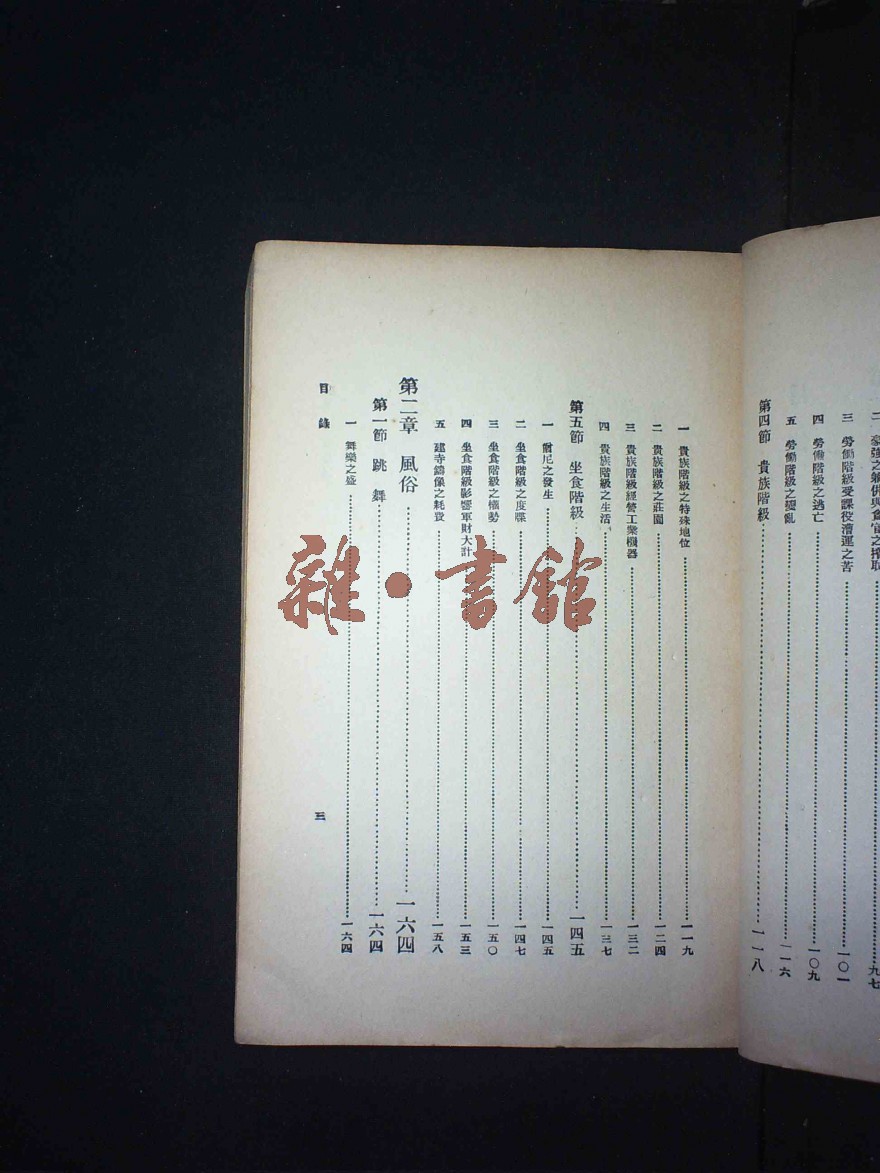 二 豪強之
三 勞働階級受課役漕運之苦……一〇一
四 勞働階級之逃亡……一〇九
五 勞働階級之變亂……一一六
第四節 貴族階級……一一八
一 貴族階級之特殊地位……一一九
二 貴族階級之莊園……一二四
三 貴族階級經營工業機器……一三二
四 貴族階級之生活……一三七
第五節 坐食階級……一四五
一 僧尼之發生……一四五
二 坐食階級之度牒……一四七
三 坐食階級之權勢……一五〇
四 坐食階級影響軍財大計……一五三
五 建寺鑄像之耗費……一五八
第二章 風俗……一六四
第一節 跳舞……一六四
一 舞樂之盛……一六四
目錄
三
雜·書館